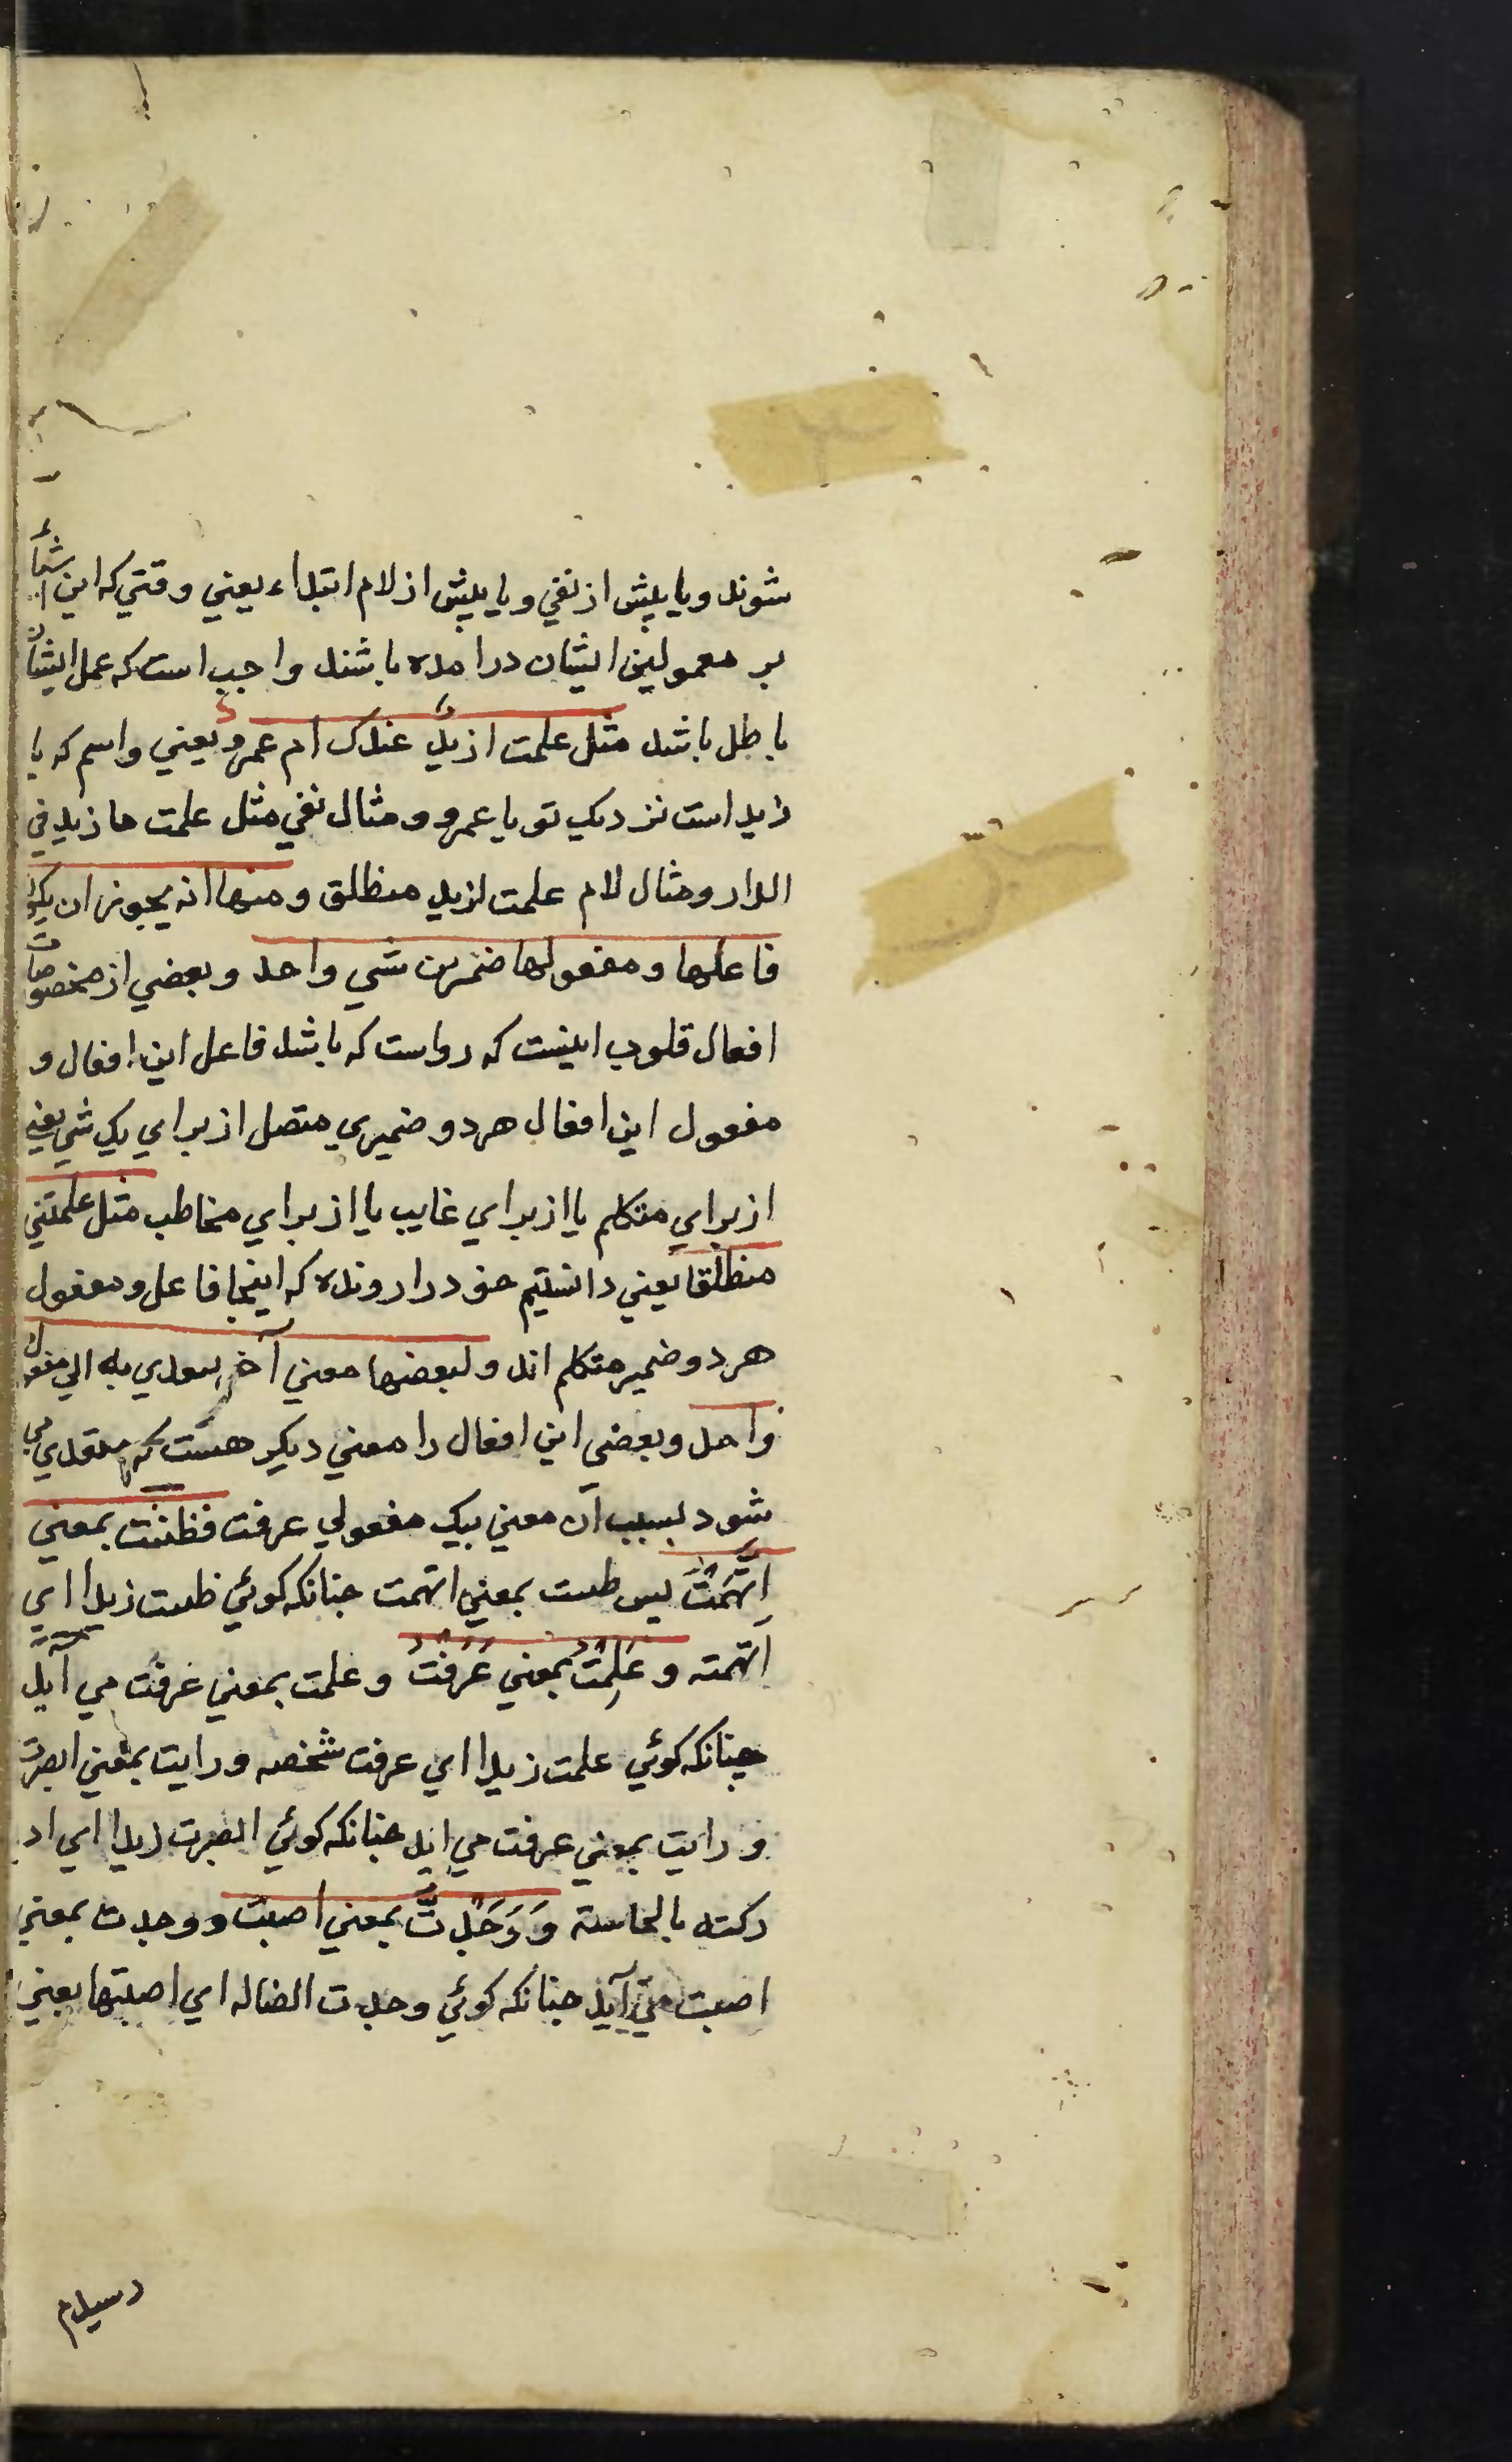 شوند ویا پیش از نفي ویا پیش از لام ابتداء یعني وقتي که این اشیا
بر معمولین ایشان درامده باشند واجب است که عمل ایشان
باطل باشد مثل علمت ازید عندک ام عمرو یعني واسم که یا
زید است نزدیک تو یا عمرو ومثال نفي مثل علمت ما زید في
الدار ومثال لام علمت لزید منطلق ومنها انه یجوز ان یکون
فاعلها ومفعولها ضمیرین شي واحد وبعضي از مخصوصات
افعال قلوب اینست که رواست که باشد فاعل این افعال و
مفعول این افعال هر دو ضمیري متصل از براي یک شي یعني
از براي متکلم یا از براي غایب یا از براي مخاطب مثل علمتني
منطلقا یعني دانستیم خود را رونده که اینجا فاعل ومفعول
هر دو ضمیر متکلم اند ولبعضها معني آخر یتعدي به الي مفعول
واحد وبعضي این افعال را معني دیکر هست که متعدي مي
شود بسبب آن معني بیک مفعولي عرفت فظننت بمعني
اِتَّهَمْتُ پس ظننت بمعني اتهمت جنانکه کوئي ظننت زیدا اي
اتهمته و عَلِمْتُ بمعني عَرَفْتُ وعلمت بمعني عرفت مي آید
جنانکه کوئي علمت زیدا اي عرفت شخصه ورایت بمعني ابصرت
ورایت بمعني عرفت مي اید جنانکه کوئي ابصرت زیدا اي اد
رکته بالحاسة وَوَجَدْتُ بمعني اصبت ووجدت بمعني
اصبت مي آید جنانکه کوئي وجدت الضاله اي اصبتها یعني